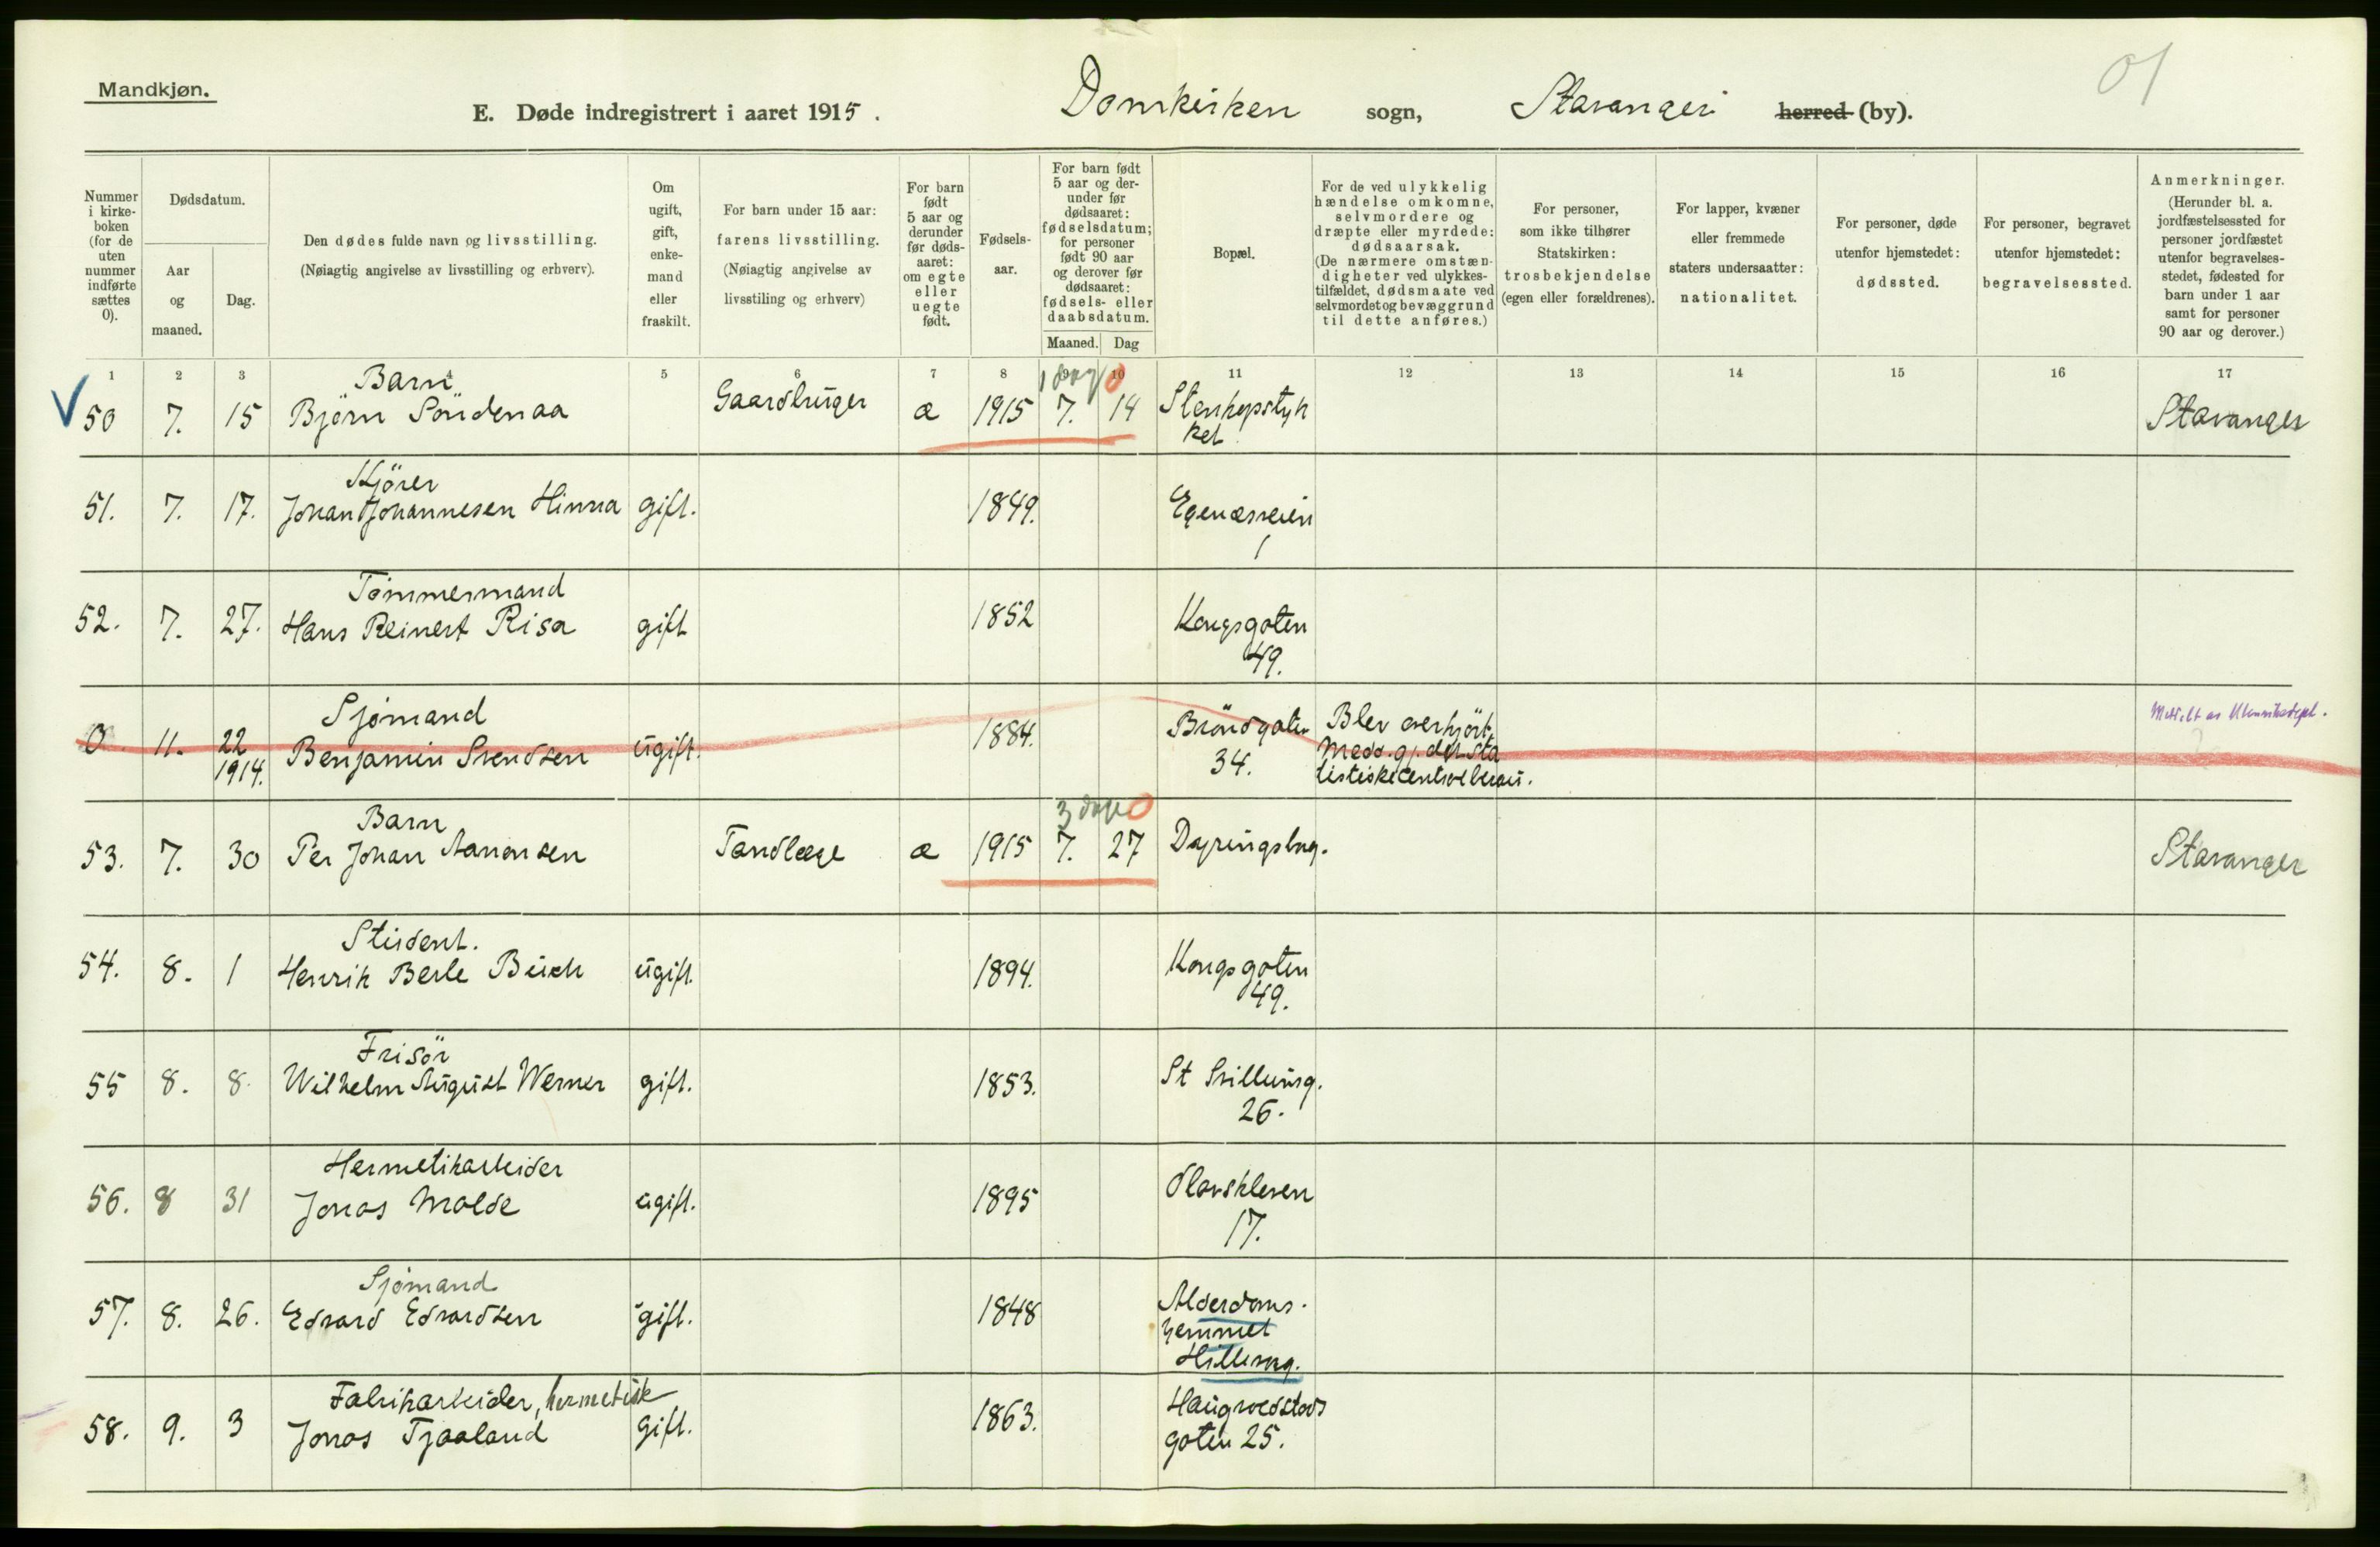 Mandkjøn.
E. Døde indregistrert i aaret 1915. Domkirken sogn, Stavanger herred (by).
01
Nummer i kirke-boken (for de uten nummer indførte sættes 0).
Dødsdatum.
Aar og maaned.
Dag.
Den dødes fulde navn og livsstilling.
(Nøiagtig angivelse av livsstilling og erhverv).
Om ugift, gift, enke-mand eller fraskilt.
For barn under 15 aar: farens livsstilling.
(Nøiagtig angivelse av livsstiling og erhverv)
For barn født 5 aar og derunder før døds-aaret: om egte eller uegte født.
Fødsels-aar.
For barn født 5 aar og der-under før dødsaaret: fødselsdatum; for personer født 90 aar og derover før dødsaaret: fødsels- eller daabsdatum.
Maaned. Dag
Bopæl.
For de ved ulykkelig hændelse omkomne, selvmordere og dræpte eller myrdede: dødsaarsak.
(De nærmere omstæn-digheter ved ulykkes-tilfældet, dødsmaate ved selvmordet og bevæggrund til dette anføres.)
For personer, som ikke tilhører Statskirken: trosbekjendelse (egen eller forældrenes).
For lapper, kvæner eller fremmede staters undersaatter: nationalitet.
For personer, døde utenfor hjemstedet: dødssted.
For personer, begravet utenfor hjemstedet: begravelsessted.
Anmerkninger.
(Herunder bl. a. jordfæstelsessted for personer jordfæstet utenfor begravelses-stedet, fødested for barn under 1 aar samt for personer 90 aar og derover.)
1 2 3 4 5 6 7 8 9 10 11 12 13 14 15 16 17
Barn 1 dag 0
50 7. 15 Björn Söndenaa Gaardbruger æ 1915 7. 14 Stavanger
Kjörer
51. 7. 17. Johan Johannesen Hinna gift. 1849. Egenæsveien
1
Tømmermand
52. 7. 27. Hans Reinert Risa gift 1852 Kongsgaten
49.
Sjømand
0 11. 22 1914. Benjamin Svendsen ugift. 1884. Bröndgaten 34. Blev overkjört.
Medd. gj. det Sta
tistiske centralbureau.
Barn 3 dage 0
53. 7. 30 Per Johan Aanensen Tandlæge æ 1915 7. 27 Stavanger
Student.
54. 8. 1 Henrik Berle Buch ugift. 1894. Kongsgaten
49.
Frisör
55 8. 8. Wilhelm August Werner gift. 1853. St
26.
Hermetikarbeider
56. 8 31 Jonas Molde ugift. 1895 Olavskleven
17.
Sjømand
57. 8. 26. Edvard Edvardsen gift. 1848 Alderdoms.
hjemmet
Hillevåg.
Fabrikarbeider, hermetisk
58. 9. 3 Jonas Tjaaland gift. 1863. Haugvaldstads
gaten 25.